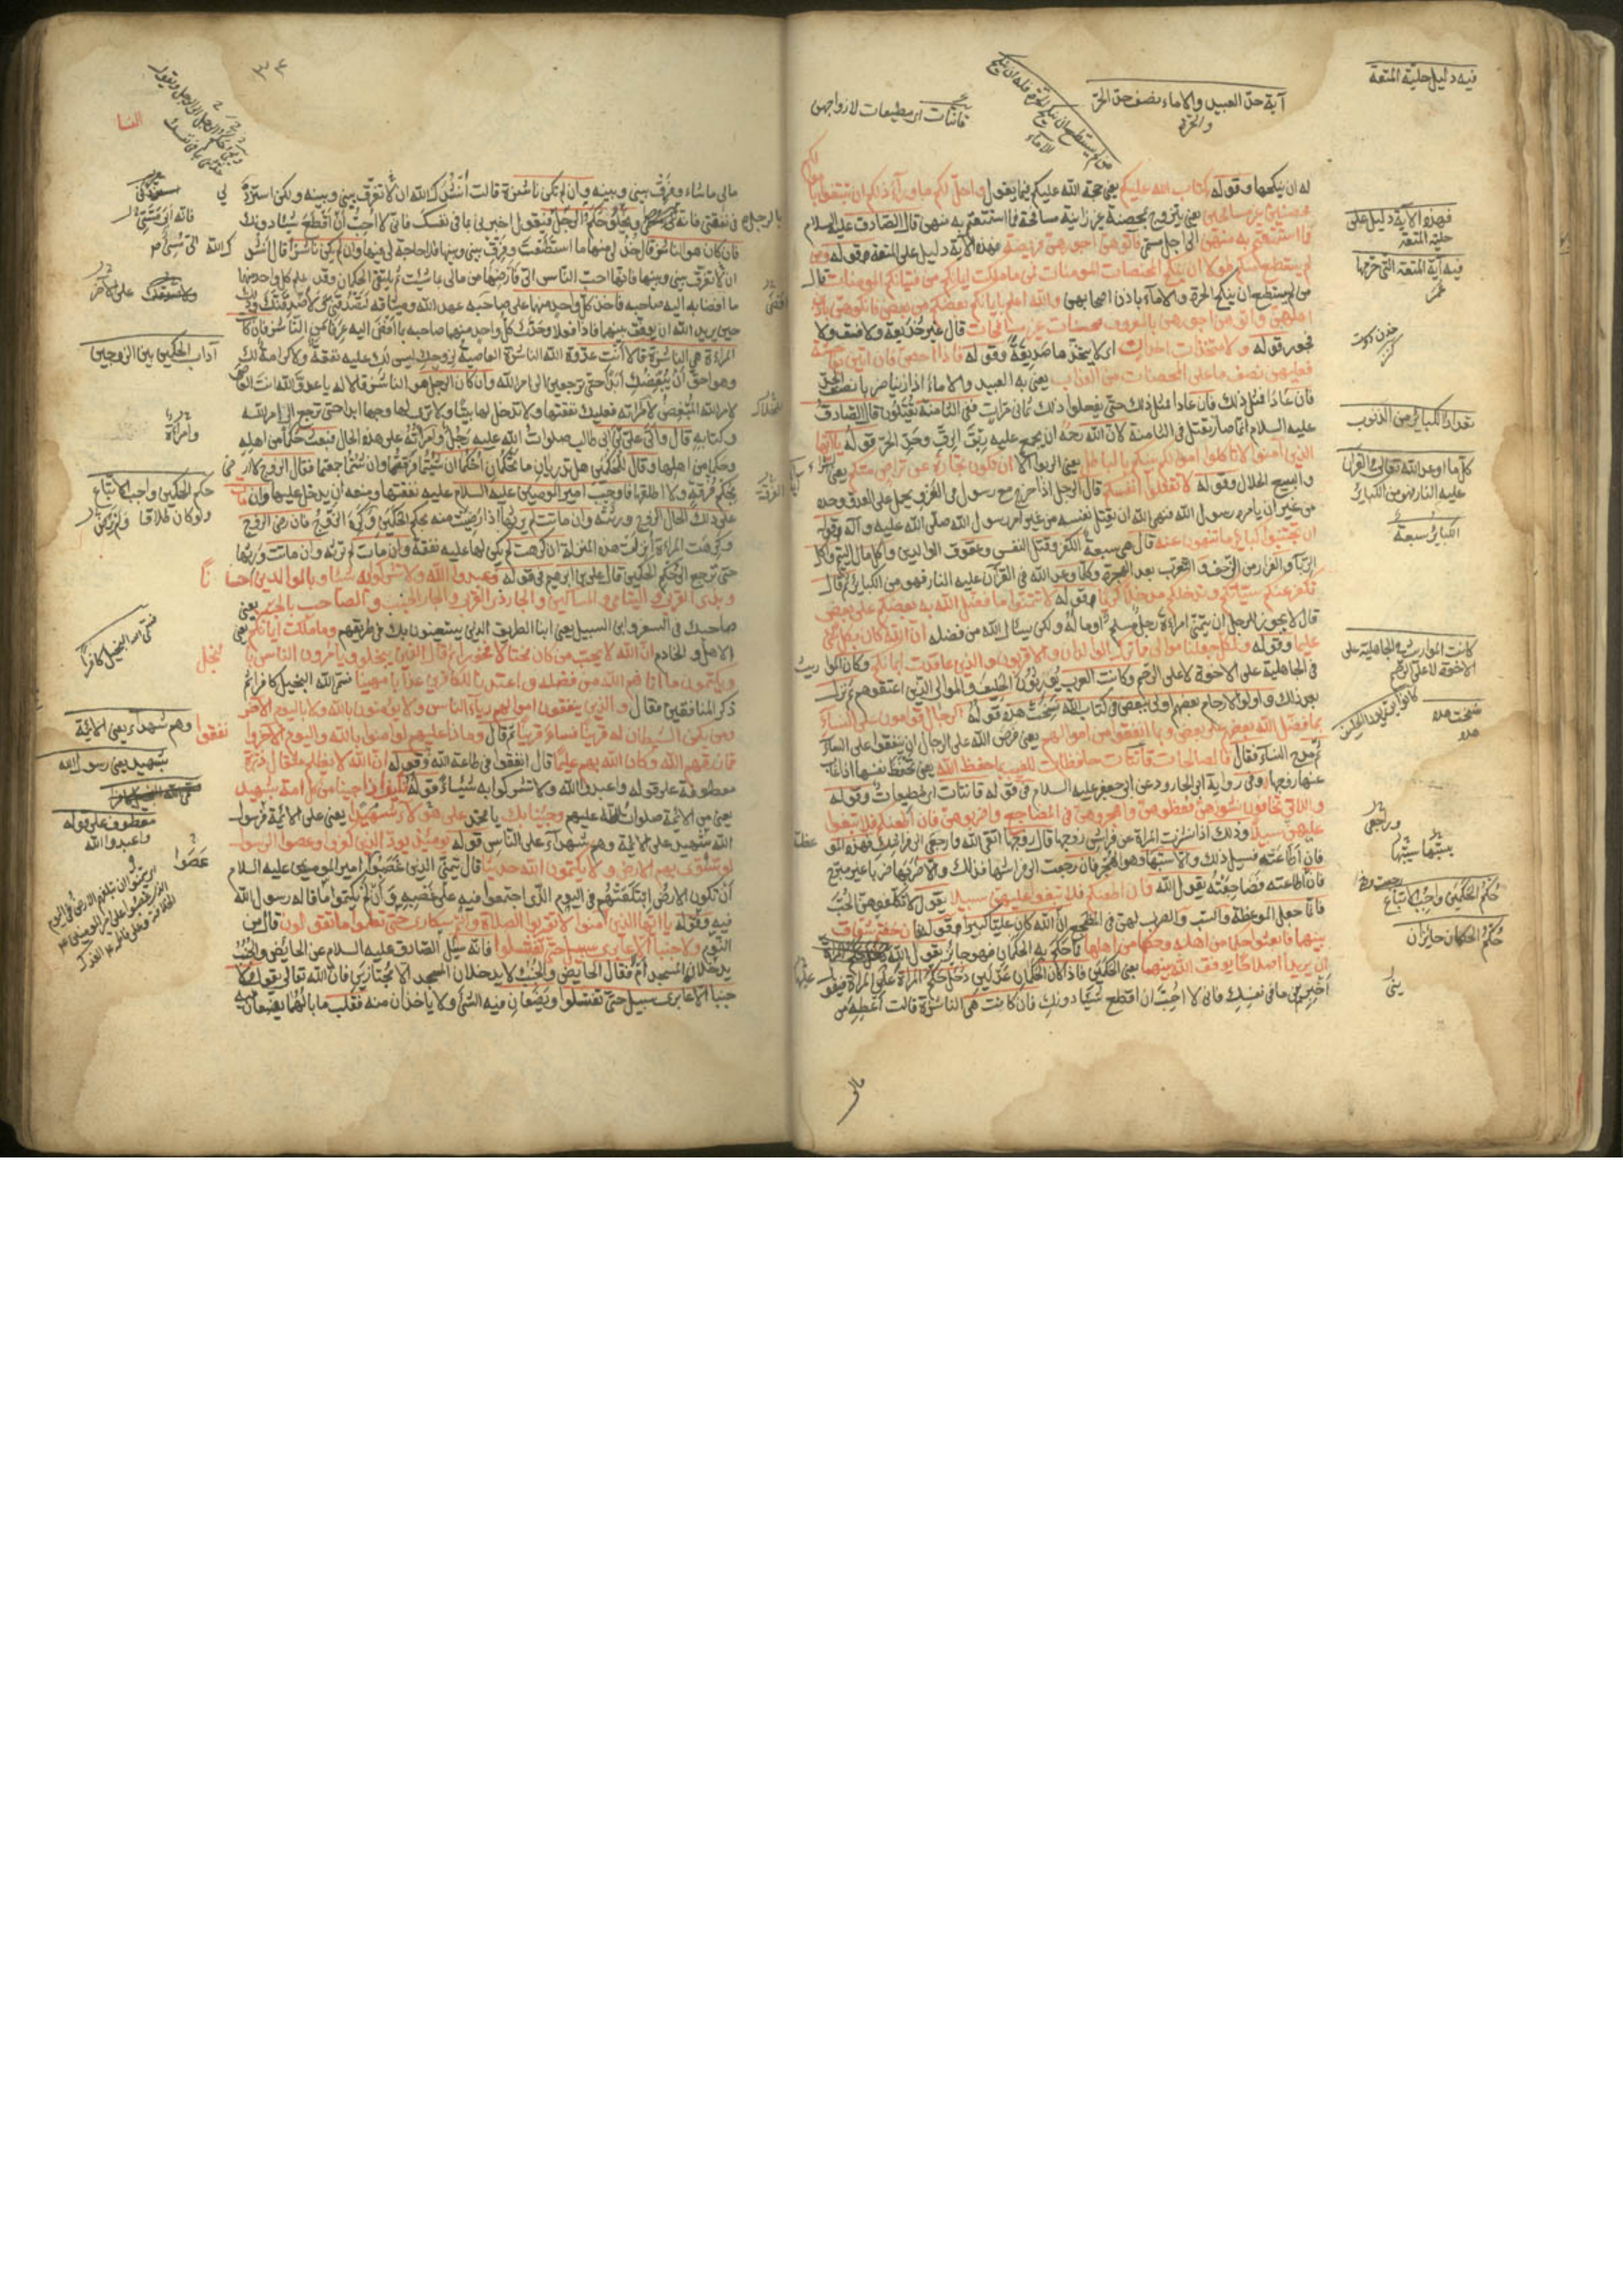 فيه دليل حليّة المتعة
آية حق العبيد والاماء نصف حق الحرّ
والحرّة
قانتات اى مطيعات لازواجهن
له ان ينكحها وقوله كتاب الله عليكم يعنى حجة الله عليكم فيما يقول واحلّ لكم ما ورآء ذلكم ان تبتغوا با
محصنين غير مسافحين يعنى يتزوج بمحصنة غير زانية مسافحة فما استمتعتم به منهن قال الصادق عليه السلام
فما استمتعتم به منهن الى اجل مسمّى فآتوهنّ اجورهنّ فريضة فهذه الآية دليل على المتعة وقوله ومن
لم يستطع منكم طولا ان ينكح المحصنات المومنات فمن ما ملكت ايمانكم من فتياتكم المومنات قال
من لم يستطع ان ينكح الحرة والامآء باذن اصحابهن والله اعلم بايمانكم بعضكم من بعض فانكحوهن باذن
اهلهنّ وآتوهن اجورهن بالمعروف محصنات غير مسافحات قال غير خديعة ولا فسق ولا
فجور قوله ولا متخذات اخدان اى لا يتخذها صديقة وقوله فاذا احصنّ فان اتين بفاحشة
فعليهن نصف ما على المحصنات من العذاب يعنى به العبيد والاماء اذا زنيا ضربا نصف الحدّ
فان عادا فمثل ذلك فان عادا فمثل ذلك حتى يفعلوا ذلك ثمانى مرات ففى الثامنة يقتلون قال الصادق
عليه السلام انما صار يقتل فى الثامنة لانّ الله رحمه ان يجمع عليه ربق الرقّ وحدّ الحرّ قوله ياايّها
الذين آمنوا لا تاكلوا اموالكم بينكم بالباطل يعنى الربوا الّا ان تكون تجارة عن تراض منكم يعنى
والبيع الحلال وقوله لا تقتلوا انفسكم قال الرجل اذا خرج مع رسول الله فى الغزو يحمل على العدوّ وحده
من غير ان يامره رسول الله فنهى الله ان يقتل نفسه من غير امر رسول الله صلّى الله عليه وآله وقوله
ان تجتنبوا كبائر ما تنهون عنه قال هى سبعة الكفر وقتل النفس وعقوق الوالدين واكل مال اليتيم واكل
الربا والفرار من الزحف والتعرّب بعد الهجرة وكلّما وعد الله فى القرآن عليه النار فهو من الكبائر ثم قال
نكفّر عنكم سيّئاتكم وندخلكم مدخلا كريما وقوله لا تتمنّوا ما فضّل الله به بعضكم على بعض
قال لا يجوز للرجل ان يتمنّى امراءة رجل مسلم اوماله ولكن يسئال الله من فضله انّ الله كان بكلّ شئ
عليما وقوله ولكل جعلنا موالى مما ترك الوالدان والاقربون والذين عاقدت ايمانكم وكان المواريث
فى الجاهلية على الاخوة لا على الرحم وكانت العرب يورثون الحليف والموالى الذين اعتقوهم ثم نزلت
بعد ذلك واولو الارحام بعضهم اولى ببعض فى كتاب الله نسخت هذه قوله الرجال قوامون على النسآء
بما فضّل الله بعضهم على بعض وبما انفقوا من اموالهم يعنى فرض الله على الرجال ان ينفقوا على النسآء
ثم مدح النساء فقال فالصالحات قانتات حافظات للغيب بما حفظ الله يعنى تحفظ نفسها اذا غاب
عنها زوجها وفى رواية ابى الجارود عن ابى جعفر عليه السلام فى قوله قانتات اى مطيعات وقوله
واللاتى تخافون نشوزهنّ فعظوهنّ واهجروهنّ فى المضاجع واضربوهنّ فان اطعنكم فلا تبغوا
عليهن سبيلا وذلك اذا نشزت المراة عن فراش زوجها قال زوجها اتقى الله وارجعى الى فراشك فهذه الموعظة
فان اطاعته فسبيل ذلك والّا سبّها وهو الهجر فان رجعت الى فراشها فذلك والّا ضربها ضربا غير مبرّح
فان اطاعته وضاجعته يقول الله فان اطعنكم فلا تبغوا عليهنّ سبيلا يقول لا تكلّفوهنّ الحبّ
فانّما جعل الموعظة والسبّ والضرب لهنّ فى المضجع انّ الله كان عليّا كبيرا وقوله فان خفتم شقاق
بينهما فابعثوا حكما من اهله وحكما من اهلها فما حكم به الحكمان فهو جائز يقول الله
ان يريدا اصلاحا يوفق الله بينهما يعنى الحكمين فاذا كان الحكمان عدلين دخل حكم المراة على المراة فيقول
اخبرينى ما فى نفسك فانى لا احبّ ان اقطع شيئا دونك فان كانت هى الناشزة قالت اعطه من
فهذه الآية دليل على
حليّة المتعة
فيه آية المتعة التى حرّمها
عمر
تعداد الكبائر من الذنوب
كلّ ما اوعد الله تعالى فى القرآن
عليه النار فهو من الكبائر
الكبائر سبعة
كانت المواريث فى الجاهلية على
الاخوة لا على الرحم
نسخت هذه
وارجعى
حكم الحكمين واجب الاتباع
حكم الحكمان جايزان
مالى
٣٤
النسا
مالى ما شاء وفرّق بينى وبينه وان لم تكن ناشزة قالت انشدك الله ان لا تفرّق بينى وبينه ولكن استزد لى
فى نفقتى فانه ويخلو حكم الرجل بالرجل فيقول اخبرنى بما فى نفسك فانى لا احبّ ان اقطع شيئا دونك
فان كان هو الناشز قال خذ لى منها ما استطعت وفرّق بينى وبينها فلا حاجة لى فيها وان لم يكن ناشزا قال انشدك الله
ان لا تفرّق بينى وبينها فانها احبّ الناس الىّ فارضها من مالى بما شئت ثم يلتقى الحكمان وقد علم كل واحد منهما
ما افضا به اليه صاحبه فاخذ كلّ واحد منهما على صاحبه عهد الله وميثاقه لتصدقنّى ولاصدقنّك وذلك
حين يريد الله ان يوفّق بينهما فاذا فعلا وحدّث كلّ واحد منهما صاحبه بما افضى اليه عرفا من الناشز فان كانت
المراءة هى الناشزة قالا انت عدوّة الله الناشزة العاصية لزوجك ليس لك عليه نفقة ولا كرامة لك
وهو احق ان يبغضك ابدا حتى ترجعين الى امر الله وان كان الرجل هو الناشز قالا له يا عدوّ الله انت العاصى
لامر الله المبغض لامراته فعليك نفقتها ولا تدخل لها بيتا ولا ترى لها وجها ابدا حتى ترجع الى امر الله
وكتابه قال واتى علىّ بن ابى طالب صلوات الله عليه رجل وامراته على هذه الحال فبعث حكما من اهله
وحكما من اهلها وقال للحكمين هل تدريان ما تحكمان احكما ان شئتما فرّقتما وان شئتما جمعتما فقال الزوج لا ارضى
بحكم فرقة ولا اطلقها فاوجب امير الوصيين عليه السلام عليه نفقتها ومنعه ان يدخل عليها وان مات
على ذلك الحال الزوج ورثته وان ماتت لم يرثها اذا رضيت منه بحكم الحكمين وكره الزوج فان رضى الزوج
وكرهت المراءة انزلت هذه المنزلة ان كرهت لم يكن لها عليه نفقة وان مات لم ترثه وان ماتت ورثها
حتى ترجع الى حكم الحكمين قال على بن ابرهيم فى قوله واعبدوا الله ولا تشركوا به شيئا وبالوالدين احسانا
وبذى القربى واليتامى والمساكين والجار ذى القربى والجار الجنب والصاحب بالجنب يعنى
صاحبك فى السفر وابن السبيل يعنى ابنا الطريق الذين يستعينون بك فى طريقهم وما ملكت ايمانكم يعنى
الاهل والخادم انّ الله لا يحبّ من كان مختالا فخورا ثم قال الذين يبخلون ويامرون الناس بالبخل
ويكتمون ما اتاهم الله من فضله واعتدنا للكافرين عذابا مهينا فسمّى الله البخيل كافرا ثم
ذكر المنافقين فقال والذين ينفقون اموالهم رياء الناس ولا يومنون بالله ولا باليوم الآخر
ومن يكن الشيطان له قرينا فساء قرينا ثم قال وماذا عليهم لو آمنوا بالله واليوم الآخر وانفقوا
مما رزقهم الله وكان الله بهم عليما قال انفقوا فى طاعة الله وقوله انّ الله لا يظلم مثقال ذرّة
معطوفة على قوله واعبدوا الله ولا تشركوا به شيئا وقوله فكيف اذا جئنا من كل امة بشهيد
يعنى من الائمة صلوات الله عليهم وجئنا بك يا محمد على هؤلاء شهيدا يعنى على الائمة فرسول
الله شهيد على الائمة وهم شهدآء على الناس قوله يومئذ يود الذين كفروا وعصوا الرسول
لو تسوّى بهم الارض ولا يكتمون الله حديثا قال يتمنّى الذين غصبوا امير المومنين عليه السلام
ان تكون الارض ابتلعتهم فى اليوم الذى اجتمعوا فيه على غصبه وان لم يكتموا ما قاله رسول الله
فيه وقوله ياايها الذين آمنوا لا تقربوا الصلاة وانتم سكارى حتى تعلموا ما تقولون قال من
النوم ولا جنبا الّا عابرى سبيل حتى تغتسلوا فانه سئل الصادق عليه السلام عن الحائض والجنب
يدخلان المسجد ام لا فقال الحايض والجنب لا يدخلان المسجد الا مجتازين فان الله تعالى يقول ولا
جنبا الا عابرى سبيل حتى تغتسلوا ويضعان فيه الشئ ولا ياخذان منه فقلت ما بالهما يضعان فيه
آداب الحكمين بين الزوجين
وامراة
حكم الحكمين واجب الاتباع
ولو كان طلاقا
فسمّى الله البخيل كافرا
وهم شهدآء يعنى الائمة
بشهيد يعنى رسول الله
معطوف على قوله
واعبدوا الله
عصوا